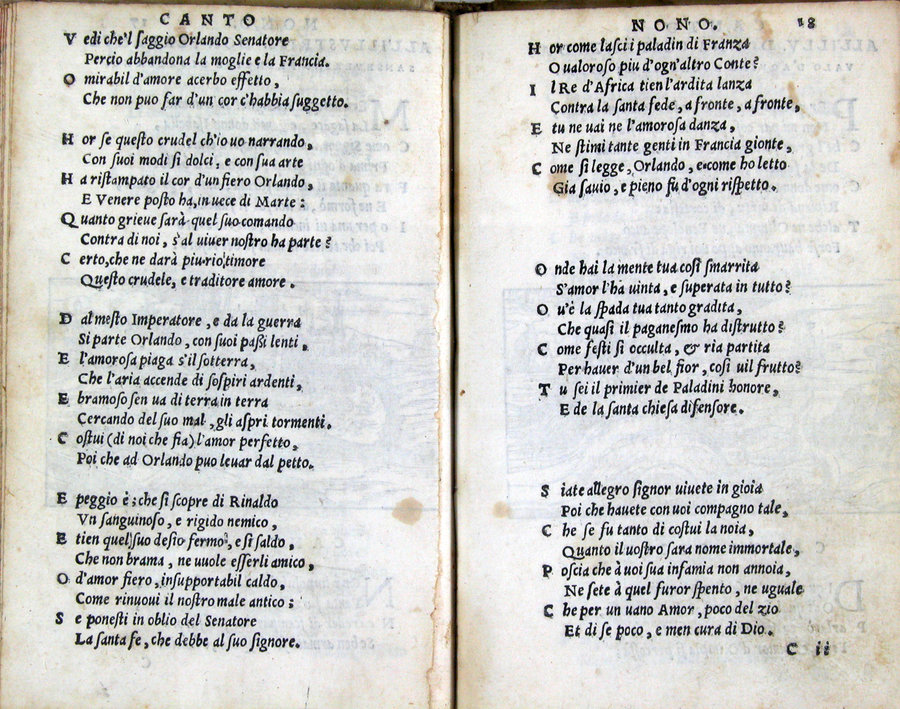 CANTO
Vedi che'l saggio Orlando Senatore
Percio abbandona la moglie e la Francia.
O mirabil d'amore acerbo effetto,
Che non puo far d'un cor c'habbia suggetto.
Hor se questo crudel ch'io uo narrando,
Con suoi modi si dolci, e con sua arte
Ha ristampato il cor d'un fiero Orlando,
E Venere posto ha, in uece di Marte:
Quanto grieue sarà quel suo comando
Contra di noi, s'al uiuer nostro ha parte?
Certo, che ne darà piu rio timore
Questo crudele, e traditore amore.
Dal mesto Imperatore, e da la guerra
Si parte Orlando, con suoi passi lenti,
E l'amorosa piaga s'il sotterra,
Che l'aria accende di sospiri ardenti,
E bramoso sen ua di terra in terra
Cercando del suo mal, gli aspri tormenti.
Costui (di noi che fia) l'amor perfetto,
Poi che ad Orlando puo leuar dal petto.
E peggio è; che si scopre di Rinaldo
Vn sanguinoso, e rigido nemico,
E tien quel suo desio fermo, e si saldo,
Che non brama, ne uuole esserli amico,
O d'amor fiero, insupportabil caldo,
Come rinuoui il nostro male antico;
Se ponesti in oblio del Senatore
La santa fe, che debbe al suo signore.
NONO. 18
Hor come lasci i paladin di Franza
O ualoroso piu d'ogn'altro Conte?
Il Re d'Africa tien l'ardita lanza
Contra la santa fede, a fronte, a fronte,
E tu ne uai ne l'amorosa danza,
Ne stimi tante genti in Francia gionte,
Come si legge, Orlando, e come ho letto
Gia sauio, e pieno fu d'ogni rispetto.
Onde hai la mente tua così smarrita
S'amor l'ha uinta, e superata in tutto?
Ou'è la spada tua tanto gradita,
Che quasi il paganesmo ha distrutto?
Come festi si occulta, & ria partita
Per hauer d'un bel fior, così uil frutto?
Tu sei il primier de Paladini honore,
E de la santa chiesa difensore.
Siate allegro signor uiuete in gioia
Poi che hauete con uoi compagno tale,
Che se fu tanto di costui la noia,
Quanto il uostro sara nome immortale,
Poscia che à uoi sua infamia non annoia,
Ne sete à quel furor spento, ne uguale
Che per un uano Amor, poco del zio
Et di se poco, e men cura di Dio.
C ii